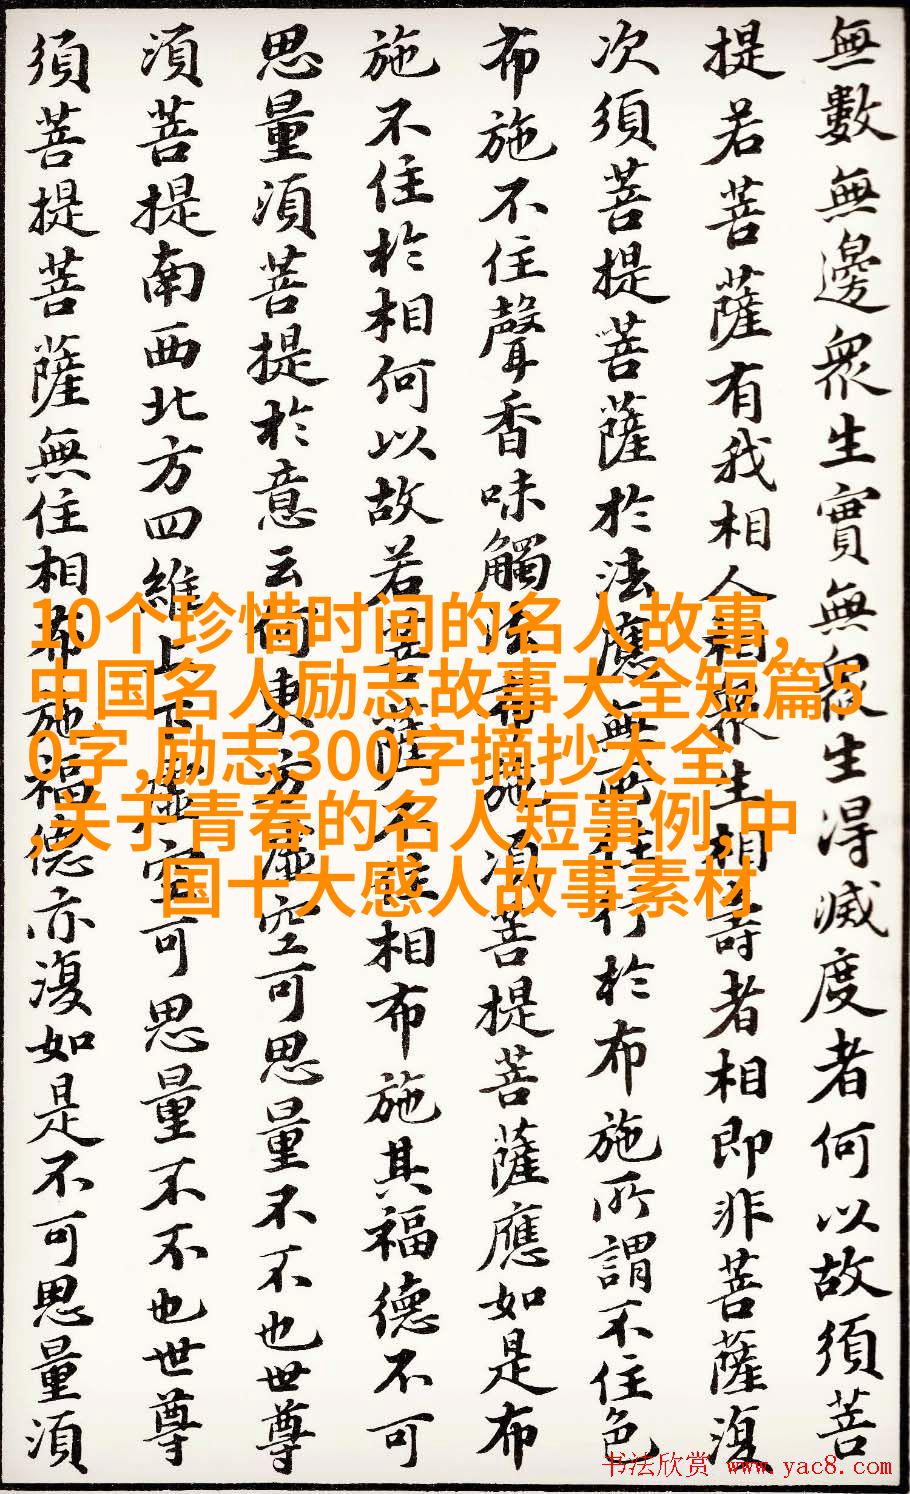 無數無邊眾生實無眾生得滅度者何以故須菩
提若菩薩有我相人相眾生相壽者相即非菩薩復
次須菩提菩薩於法應無所住行於布施所謂不住色
布施不住聲香味觸法布施須菩提菩薩應如是布
施不住於相何以故若菩薩不住相布施其福德不可
思量須菩提於意云何東方虛空可思量不不也世尊
須菩提南西北方四維上下虛空可思量不不也世尊
須菩提菩薩無住相布施福德亦復如是不可思量須
10个珍惜时间的名人故事,
中国名人励志故事大全短篇5
0字,励志300字摘抄大全
,关于青春的名人短事例,中
国十大感人故事素材
书法欣赏 www.yac8.com